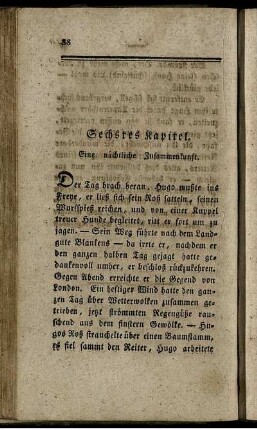 58
Sechstes Kapitel.
Eine nächtliche Zusammenkunft.
Der Tag brach heran. Hugo mußte ins
Freye, er ließ sich sein Roß satteln, seinen
Wurfspieß reichen, und von einer Kuppel
treuer Hunde begleitet, ritt er fort um zu
jagen. — Sein Weg führte nach dem Land-
gute Blankens — da irrte er, nachdem er
den ganzen halben Tag gejagt hatte ge-
dankenvoll umher, er beschloß rückzukehren.
Gegen Abend erreichte er die Gegend von
London. Ein heftiger Wind hatte den gan-
zen Tag über Wetterwolken zusammen ge-
trieben, jetzt strömmten Regengüße rau-
schend aus dem finstern Gewölke. — Hu-
gos Roß strauchelte über einen Baumstamm,
es fiel sammt den Reiter, Hugo arbeitete